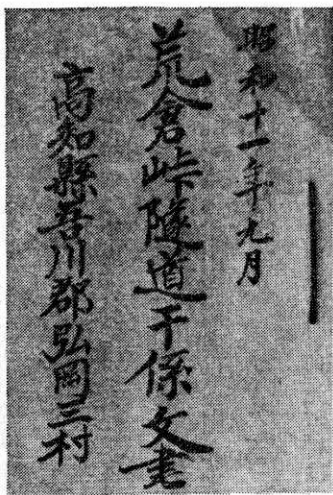 昭和十一年九月
荒倉峠隧道干係文書
高知縣吾川郡弘岡三村